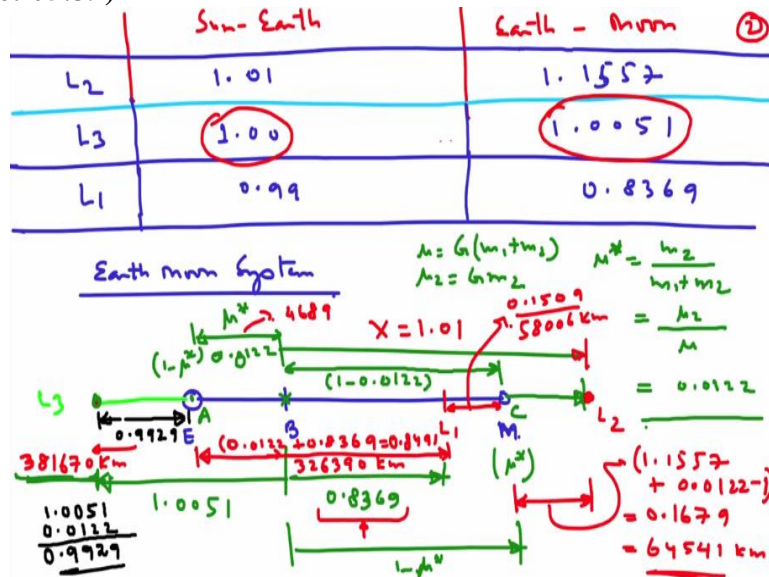 Sun-Earth Earth - Moon 2
L2 1.01 1.1557
L3 1.00 1.0051
L1 0.99 0.8369
Earth moon System
μ = G(m1+m2)
μ2 = Gm2
μ* = m2 / m1+m2
= μ2 / μ
= 0.0122
μ* 4689
X = 1.01
0.1509
58006 km
(1-μ*) 0.0122
(1-0.0122)
L3 A B L1 C L2
E M
0.9929
(0.0122+0.8369=0.8491
(μ*)
381670 km
326390 km
1.0051
0.8369
1-μ*
1.0051
0.0122
0.9929
(1.1557
+ 0.0122-1)
= 0.1679
= 64541 km